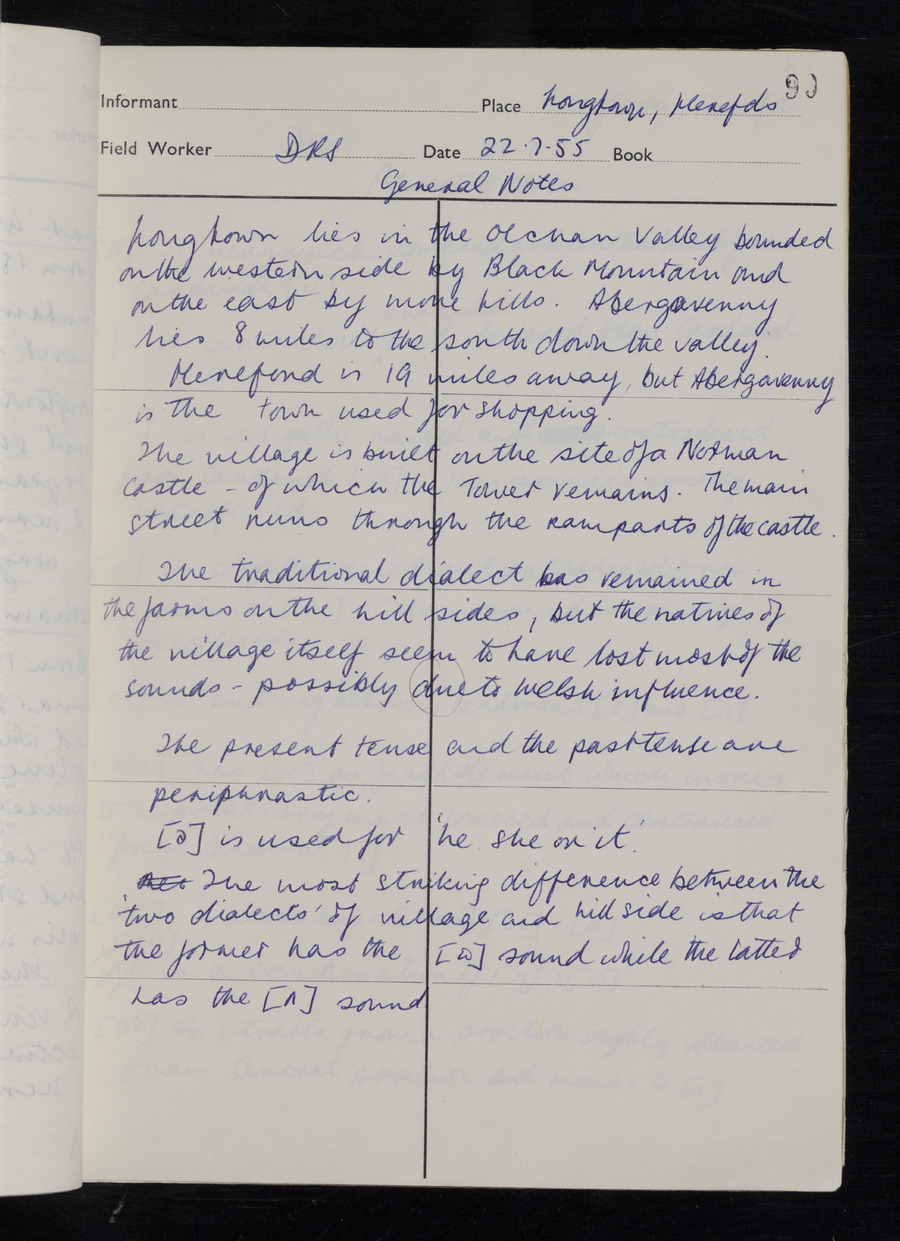 99
Informant Place Longtown, Herefds
Field Worker DRS Date 22.7.55 Book
General Notes
Longtown lies in the Olchan Valley bounded
on the western side by Black Mountain and
on the east by more hills. Abergavenny
lies 8 miles to the south down the valley.
Hereford is 19 miles away, but Abergavenny
is the town used for shopping.
The village is built on the site of a Norman
castle - of which the Tower remains. The main
street runs through the ramparts of the castle.
The traditional dialect has remained in
the farms on the hill sides, but the natives of
the village itself seem to have lost most of the
sounds - possibly due to Welsh influence.
The present tense and the past tense are
periphrastic.
[ə] is used for 'he she or it'.
The most striking difference between the
'two dialects' of village and hillside is that
the former has the [ɷ] sound while the latter
has the [ʌ] sound